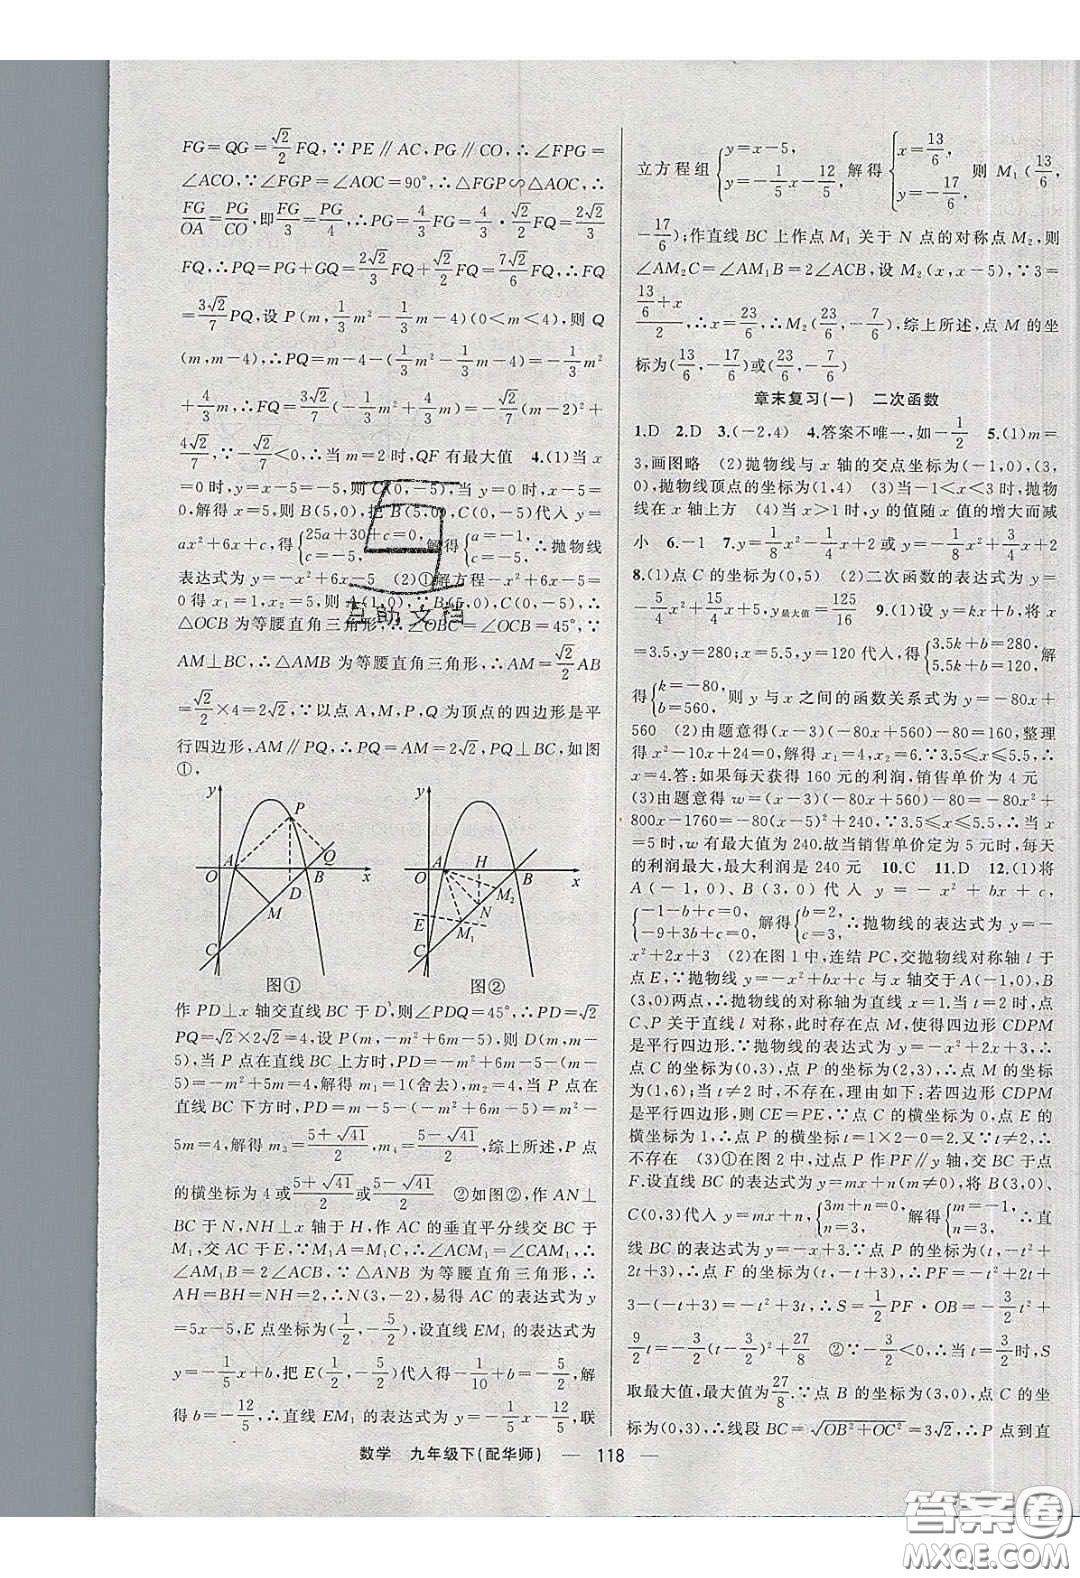 FG=QG=√2/2 FQ,∵PE∥AC,PG∥CO,∴∠FPG
=∠ACO,∵∠FGP=∠AOC=90°,∴△FGP∽△AOC,∴
FG/OA=PG/CO,即FG/3=PG/4,∴PG=4/3 FG=4/3·√2/2 FQ=2√2/3
FQ,∴PQ=PG+GQ=2√2/3 FQ+√2/2 FQ=7√2/6 FQ,∴FQ
=3√2/7 PQ,设P(m,1/3 m²-1/3 m-4)(0<m<4),则Q
(m,m-4),∴PQ=m-4-(1/3 m²-1/3 m-4)=-1/3 m²
+4/3 m,∴FQ=3√2/7(-1/3 m²+4/3 m)=-√2/7(m-2)²+
4√2/7,∵-√2/7<0,∴当m=2时,QF有最大值 4.(1)当x
=0时,y=x-5=-5,则C(0,-5),当y=0时,x-5=
0,解得x=5,则B(5,0),把B(5,0),C(0,-5)代入y=
ax²+6x+c,得{25a+30+c=0, c=-5, 解得{a=-1, c=-5. ∴抛物线
表达式为y=-x²+6x-5 (2)①解方程-x²+6x-5=
0得x₁=1,x₂=5,则A(1,0),∵B(5,0),C(0,-5),∴
△OCB为等腰直角三角形,∴∠OBC=∠OCB=45°,∵
AM⊥BC,∴△AMB为等腰直角三角形,∴AM=√2/2 AB
=√2/2×4=2√2,∵以点A,M,P,Q为顶点的四边形是平
行四边形,AM∥PQ,∴PQ=AM=2√2,PQ⊥BC,如图
①,
y P A Q O D B x M C 图①
y H A O B x M₂ E N M₁ C 图②
作PD⊥x轴交直线BC于D,则∠PDQ=45°,∴PD=√2
PQ=√2×2√2=4,设P(m,-m²+6m-5),则D(m,m-
5),当P点在直线BC上方时,PD=-m²+6m-5-(m-
5)=-m²+5m=4,解得m₁=1(舍去),m₂=4,当P点在
直线BC下方时,PD=m-5-(-m²+6m-5)=m²-
5m=4,解得m₃=5+√41/2,m₄=5-√41/2,综上所述,P点
的横坐标为4或5+√41/2或5-√41/2 ②如图②,作AN⊥
BC于N,NH⊥x轴于H,作AC的垂直平分线交BC于
M₁,交AC于E,∵M₁A=M₁C,∴∠ACM₁=∠CAM₁,∴
∠AM₁B=2∠ACB,∵△ANB为等腰直角三角形,∴
AH=BH=NH=2,∴N(3,-2),易得AC的表达式为y
=5x-5,E点坐标为(1/2,-5/2),设直线EM₁的表达式为
y=-1/5 x+b,把E(1/2,-5/2)代入得-1/10+b=-5/2,解
得b=-12/5,∴直线EM₁的表达式为y=-1/5 x-12/5,联
立方程组{y=x-5, y=-1/5 x-12/5, 解得{x=13/6, y=-17/6, 则M₁(13/6,
-17/6);作直线BC上作点M₁关于N点的对称点M₂,则
∠AM₂C=∠AM₁B=2∠ACB,设M₂(x,x-5),∵3=
13/6+x/2,∴x=23/6,∴M₂(23/6,-7/6),综上所述,点M的坐
标为(13/6,-17/6)或(23/6,-7/6)
章末复习(一) 二次函数
1.D 2.D 3.(-2,4) 4.答案不唯一,如-1/2 5.(1)m=
3,画图略 (2)抛物线与x轴的交点坐标为(-1,0),(3,
0),抛物线顶点的坐标为(1,4) (3)当-1<x<3时,抛物
线在x轴上方 (4)当x>1时,y的值随x值的增大而减
小 6.-1 7.y=1/8 x²-1/4 x+2或y=-1/8 x²+3/4 x+2
8.(1)点C的坐标为(0,5) (2)二次函数的表达式为y=
-5/4 x²+15/4 x+5,y最大值=125/16 9.(1)设y=kx+b,将x
=3.5,y=280;x=5.5,y=120代入,得{3.5k+b=280, 5.5k+b=120, 解
得{k=-80, b=560, 则y与x之间的函数关系式为y=-80x+
560 (2)由题意得(x-3)(-80x+560)-80=160,整理
得x²-10x+24=0,解得x₁=4,x₂=6.∵3.5≤x≤5.5,∴
x=4.答:如果每天获得160元的利润,销售单价为4元
(3)由题意得w=(x-3)(-80x+560)-80=-80x²+
800x-1760=-80(x-5)²+240,∵3.5≤x≤5.5,∴当x
=5时,w有最大值为240.故当销售单价定为5元时,每天
的利润最大,最大利润是240元 10.C 11.D 12.(1)将
A(-1,0)、B(3,0)代入y=-x²+bx+c,
{-1-b+c=0, -9+3b+c=0, 解得{b=2, c=3, ∴抛物线的表达式为y=-
x²+2x+3 (2)在图1中,连结PC,交抛物线对称轴l于
点E,∵抛物线y=-x²+bx+c与x轴交于A(-1,0),B
(3,0)两点,∴抛物线的对称轴为直线x=1,当t=2时,点
C、P关于直线l对称,此时存在点M,使得四边形CDPM
是平行四边形.∵抛物线的表达式为y=-x²+2x+3,∴
点C的坐标为(0,3),点P的坐标为(2,3),∴点M的坐标为
(1,6);当t≠2时,不存在,理由如下:若四边形CDPM
是平行四边形,则CE=PE,∵点C的横坐标为0,点E的
横坐标为1,∴点P的横坐标t=1×2-0=2.又∵t≠2,∴
不存在 (3)①在图2中,过点P作PF∥y轴,交BC于点
F.设直线BC的表达式为y=mx+n(m≠0),将B(3,0)、
C(0,3)代入y=mx+n,{3m+n=0, n=3, 解得{m=-1, n=3, ∴直
线BC的表达式为y=-x+3.∵点P的坐标为(t,-t²+
2t+3),∴点F的坐标为(t,-t+3),∴PF=-t²+2t+
3-(-t+3)=-t²+3t,∴S=1/2 PF·OB=-3/2 t²+
9/2 t=-3/2(t-3/2)²+27/8 ②∵-3/2<0,∴当t=3/2时,S
取最大值,最大值为27/8.∵点B的坐标为(3,0),点C的坐
标为(0,3),∴线段BC=√OB²+OC²=3√2,∴P点到直
数学 九年级下(配华师) — 118 —
互助文档
答案圈
MXQE.COM